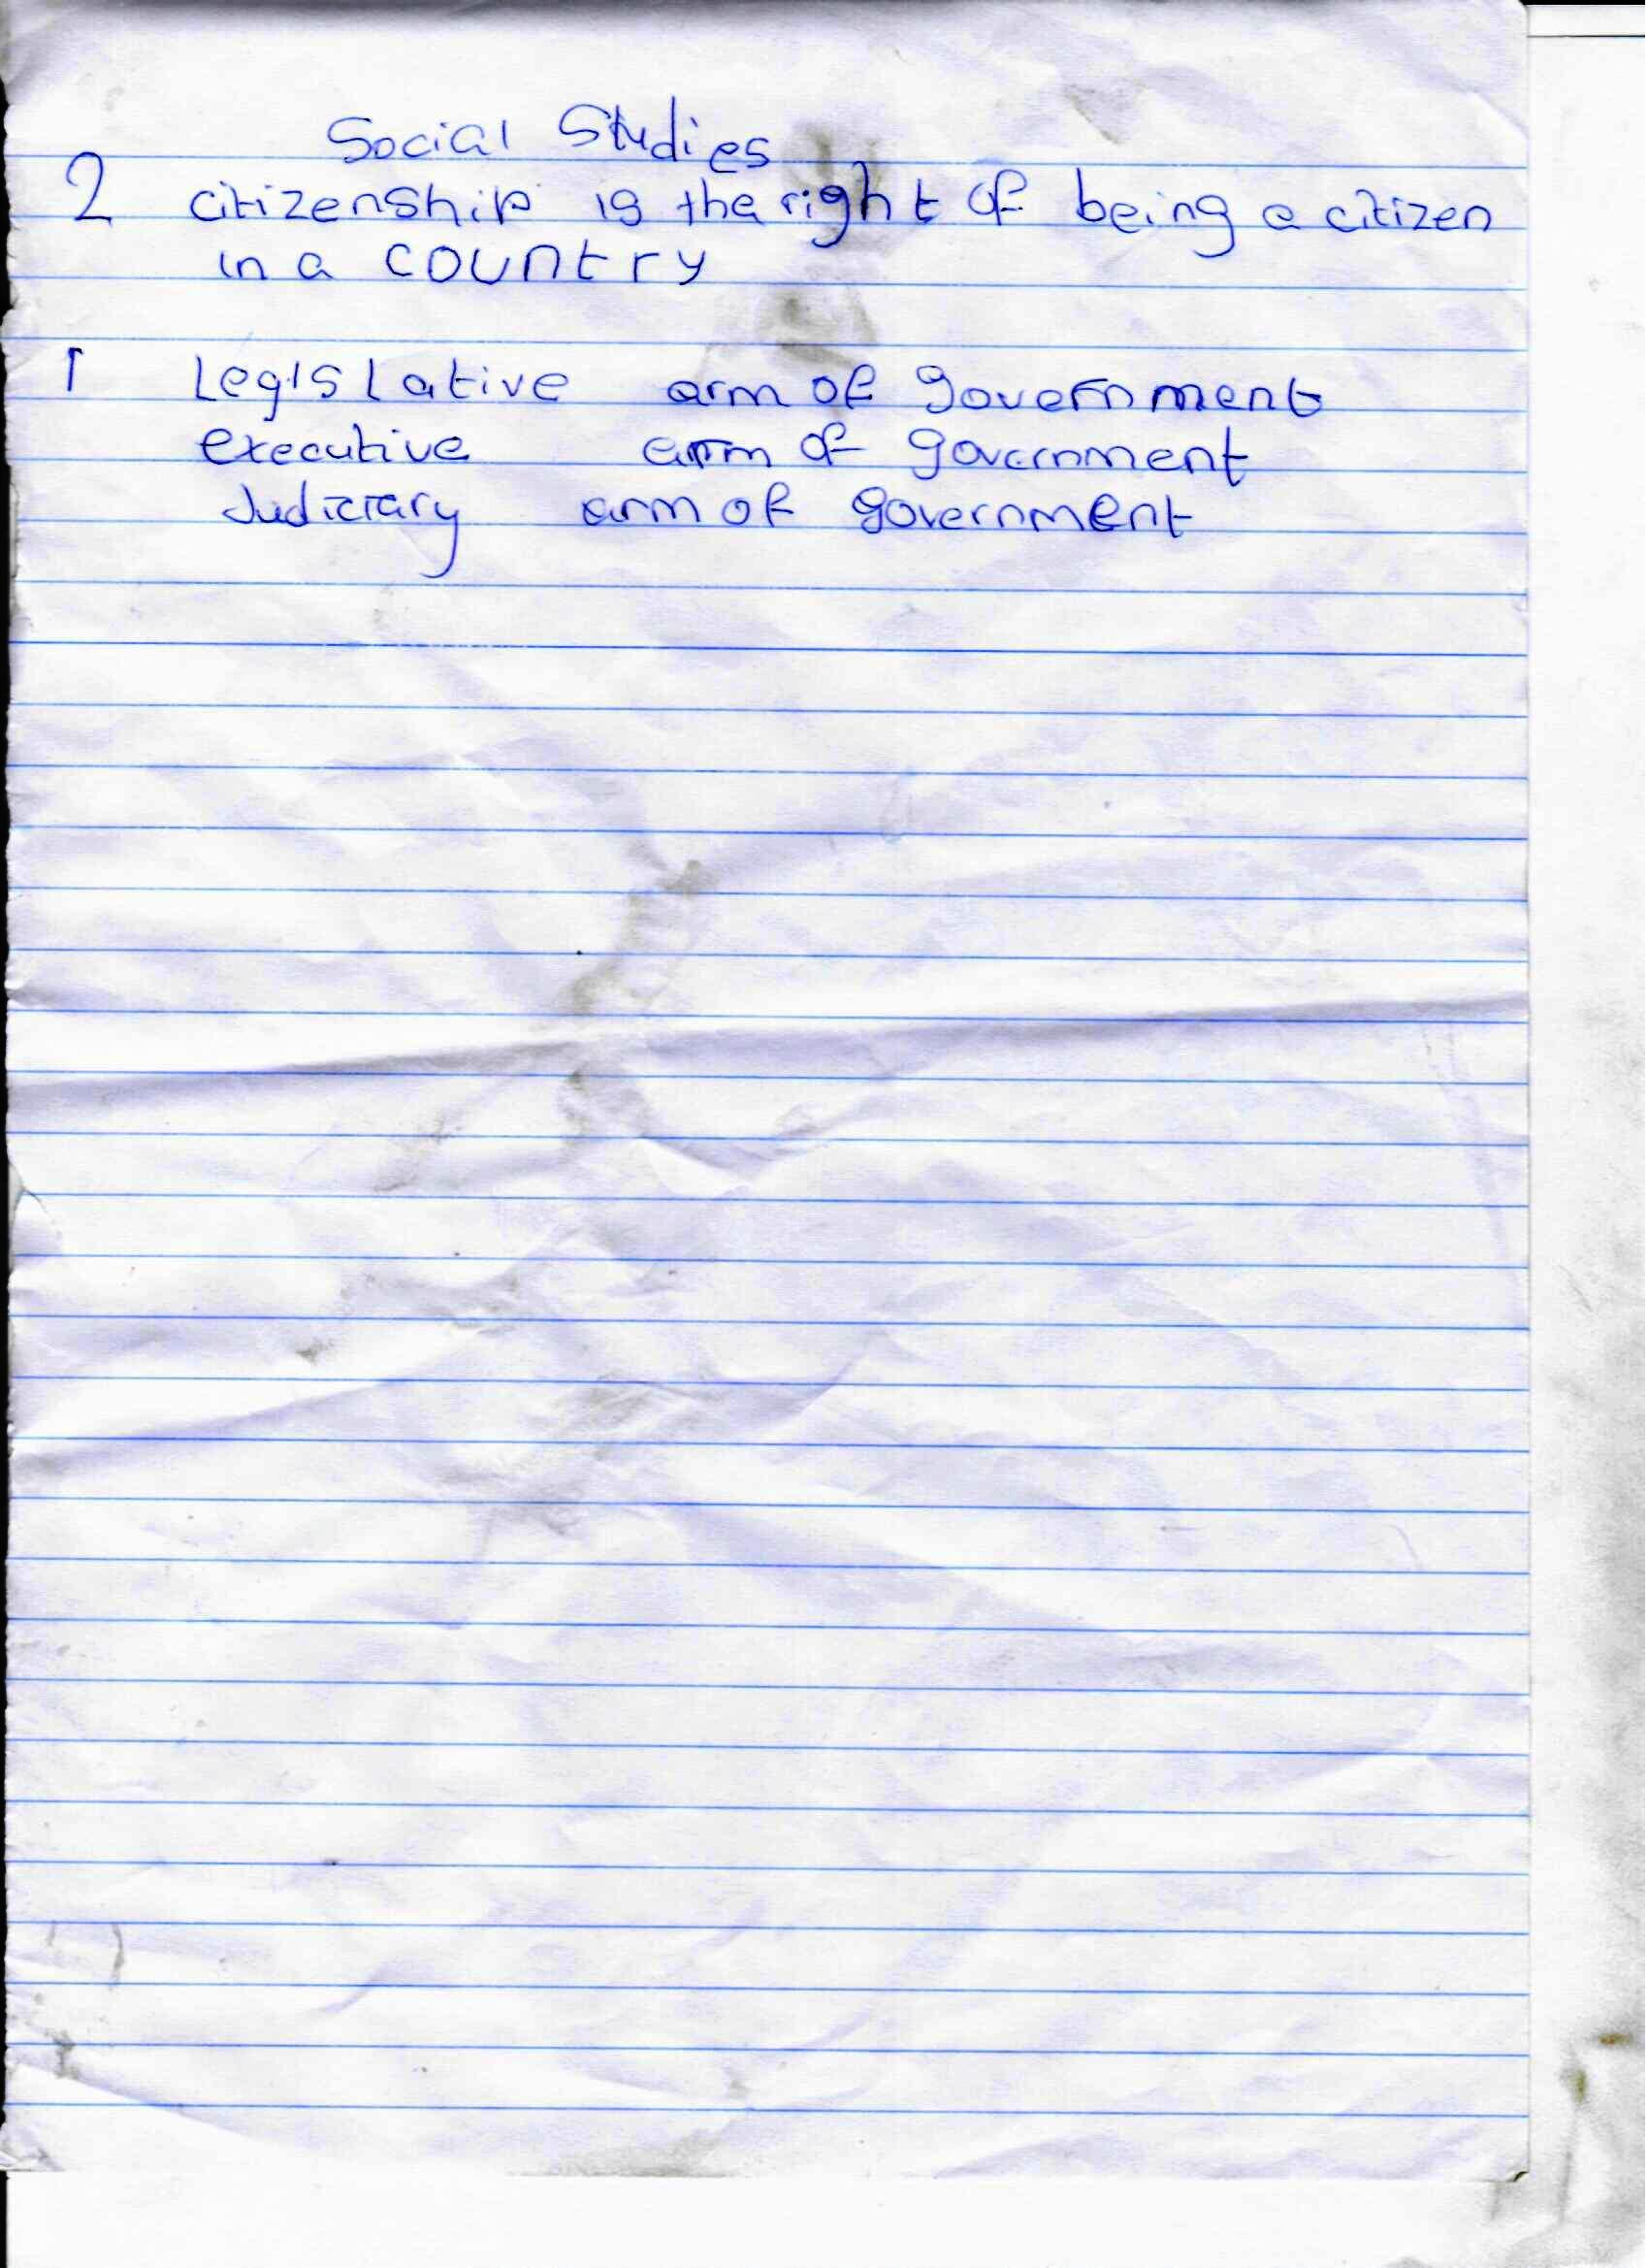 Social Studies
2 citizenship is the right of being a citizen
in a country
1 Legislative arm of government
executive arm of government
Judiciary arm of government